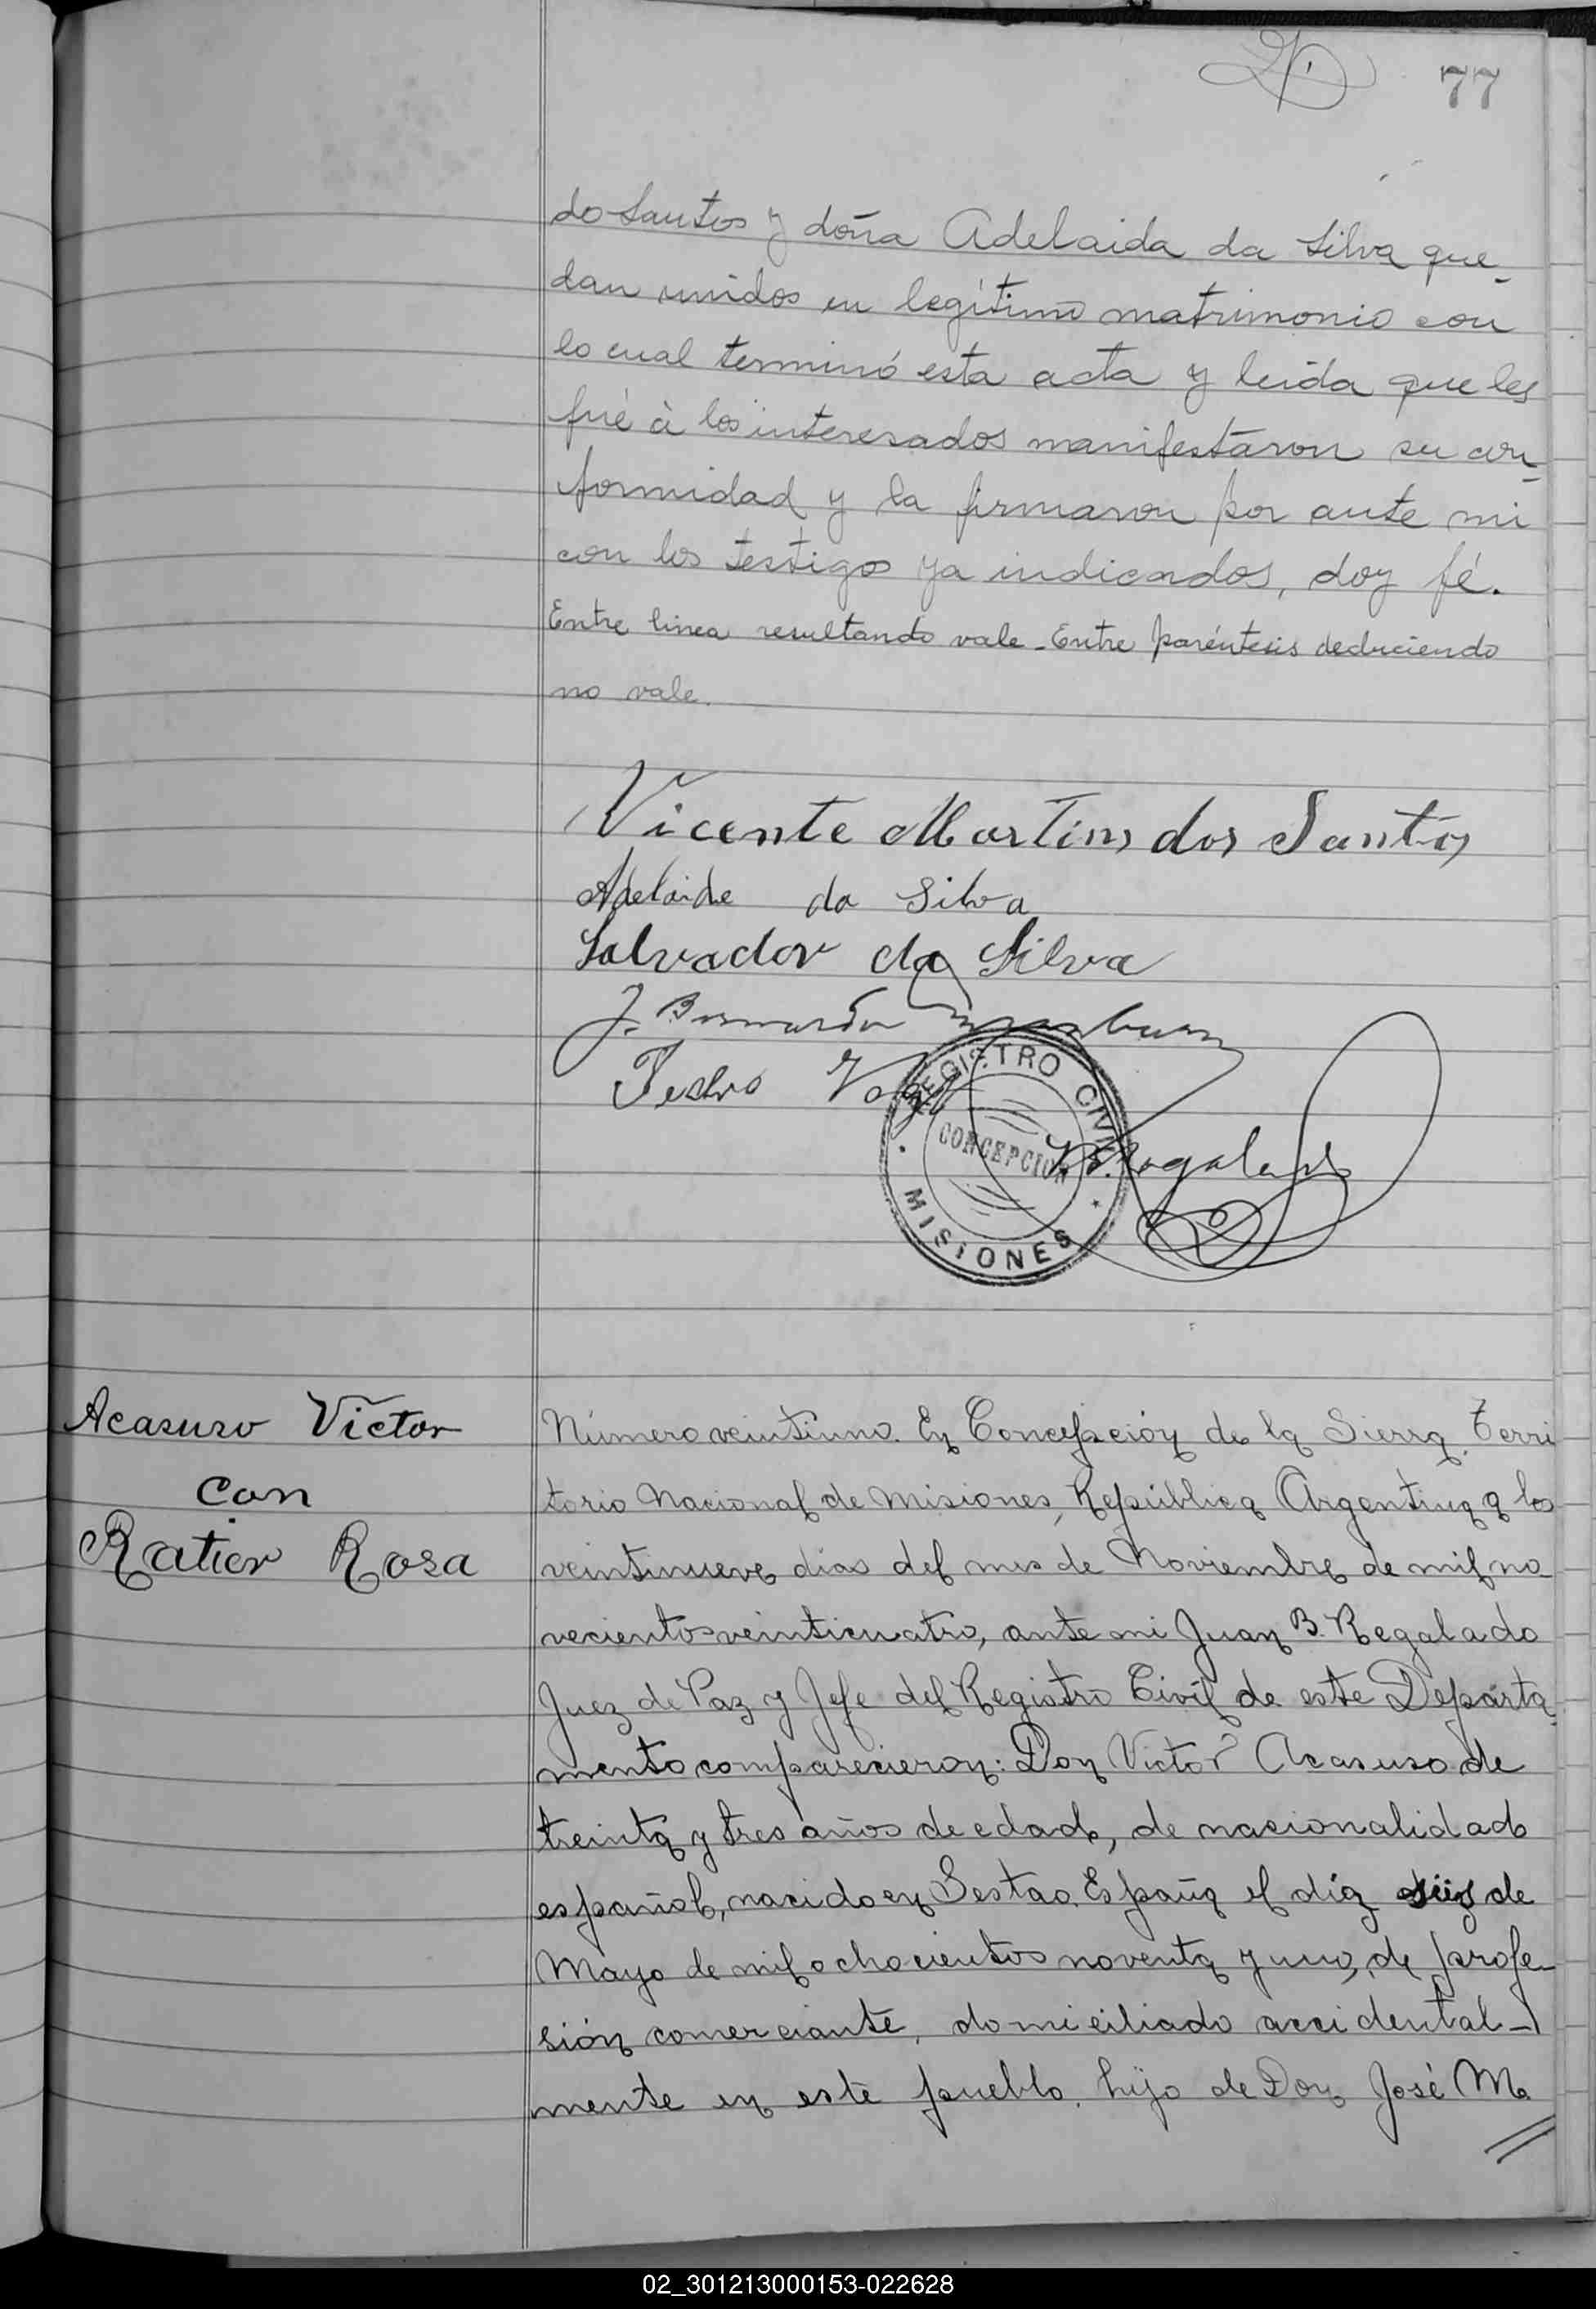 77
do Santos y doña Adelaida da Silva que-
dan unidos en legítimo matrimonio con
lo cual terminó esta acta y leida que les
fué à los interesados manifestaron su con-
formidad y la firmaron por ante mi
con los testigos ya indicados, doy fé.
Entre linea resultando vale - Entre paréntesis deduciendo
no vale.
Vicente Martins dos Santos
Adelaide da Silva
Salvador da Silva
J. Bernardo
Pedro
REGISTRO CIVIL
CONCEPCION
MISIONES
Acasuso Victor
con
Ratier Rosa
Número veintiuno. En Concepción de la Sierra, Terri
torio Nacional de Misiones, República Argentina a los
veintinueve dias del mes de Noviembre de mil no
vecientos veinticuatro, ante mi Juan B. Regalado
Juez de Paz y Jefe del Registro Civil de este Departa-
mento comparecieron: Don Victor Acasuso de
treinta y tres años de edad, de nacionalidad
español, nacido en Sestao. España el día de
Mayo de mil ochocientos noventa y uno, de profe-
sión comerciante, domiciliado accidental-
mente en este pueblo, hijo de Don José Ma
//
02_301213000153-022628